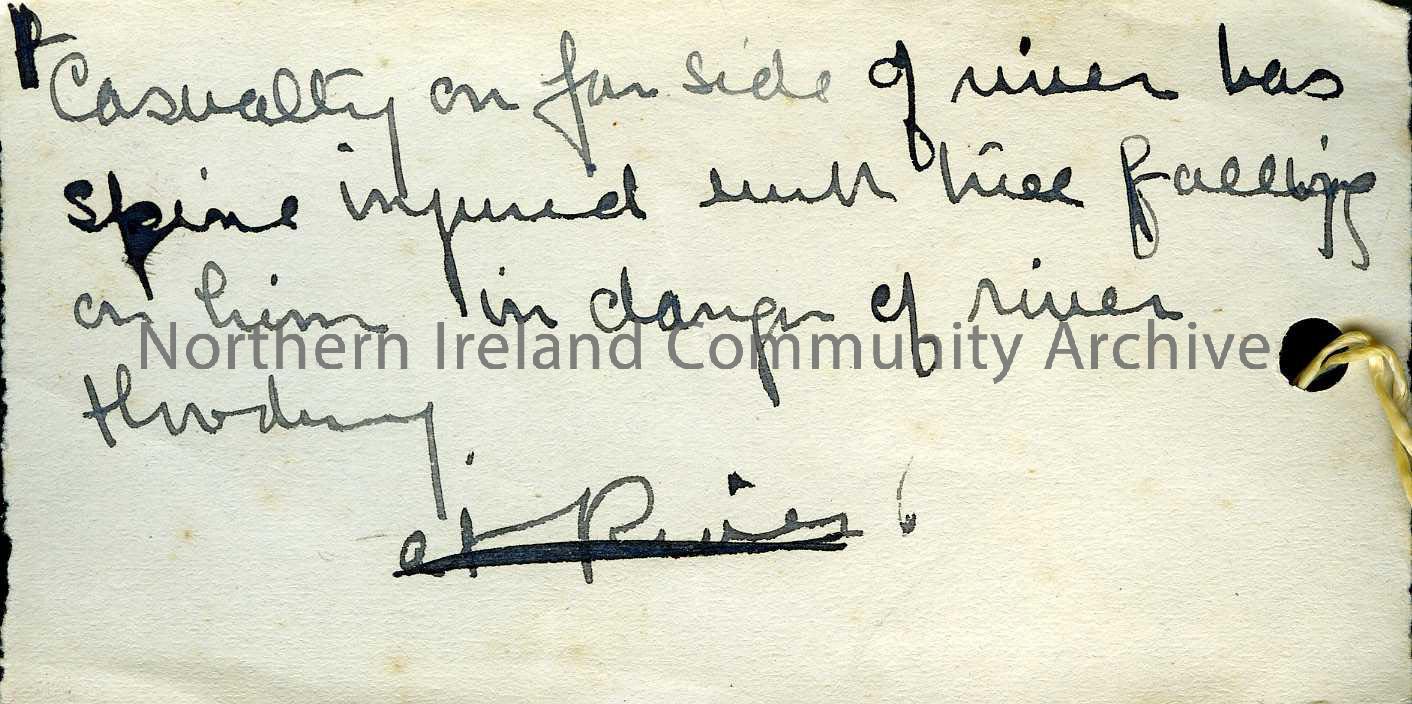 Casualty on far side of river has
spine injured with tree falling
on him in danger of river
Northern Ireland Community Archive
flooding.
at River